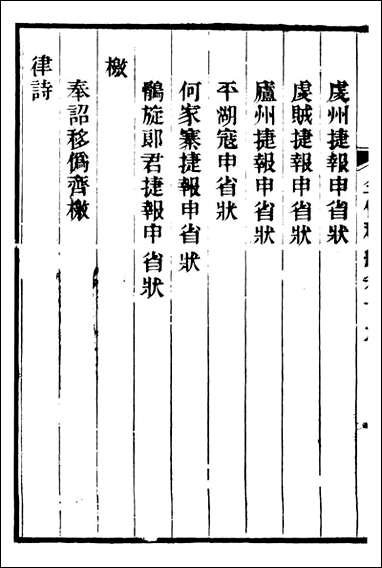 虔州捷報申省狀
虔賊捷報申省狀
廬州捷報申省狀
平湖寇申省狀
何家寨捷報申省狀
鶻旋郎君捷報申省狀
檄
奉詔移僞齊檄
律詩